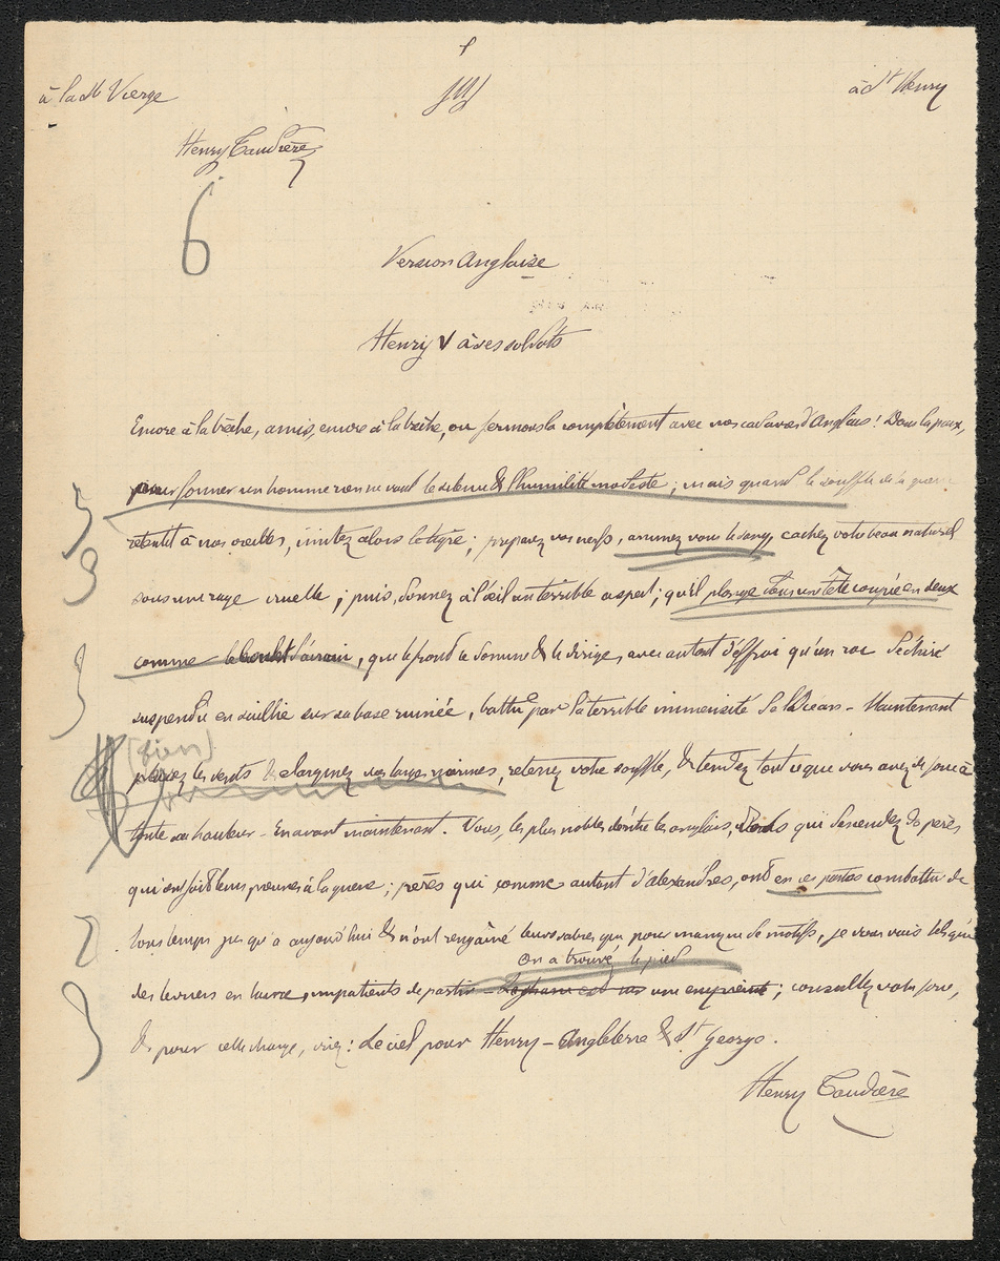 à la Ste Vierge
à St Henry
Henry Taudière
6
Version Anglaise
Henry V à ses soldats
Encore à la brèche, amis, encore à la brèche, ou fermons la complètement avec nos cadavres d'Anglais ! Dans la paix,
pour former un homme rien ne vaut le silence & l'humilité modeste ; mais quand le souffle de la guerre
retentit à nos oreilles, imitez alors le tigre ; preparez vos nerfs, ammez vous le sang, cachez votre beau naturel
sous une rage cruelle ; puis, donnez à l'œil un terrible aspect ; qu'il plonge dans une tête coupée en deux
comme le boulet d'airain, que le front le domine & le dirige, avec autant d'effroi qu'un roc déchiré
suspendu en saillie sur sa base ruinée, battu par la terrible immensité de l'Océan - Maintenant
(bien)
les dents & elargissez vos larges narines, retenez votre souffle, & tendez tout ce que vous avez de force à
toute sa hauteur - En avant maintenant. Vous, les plus nobles d'entre les anglais, qui descendez de pères
qui ont fait leurs preuves à la guerre ; pères qui comme autant d'alexandres, ont en ces parties combattu de
longtemps jusqu'a aujourd'hui & n'ont rengainé leurs sabres que pour manque de motifs, je vous vois tels que
on a trouvé le pied
des levriers en laisse, impatients de partir - une empreinte ; consultez votre force,
& pour cette charge, criez : Le ciel pour Henry - Angleterre & St George.
Henry Taudière